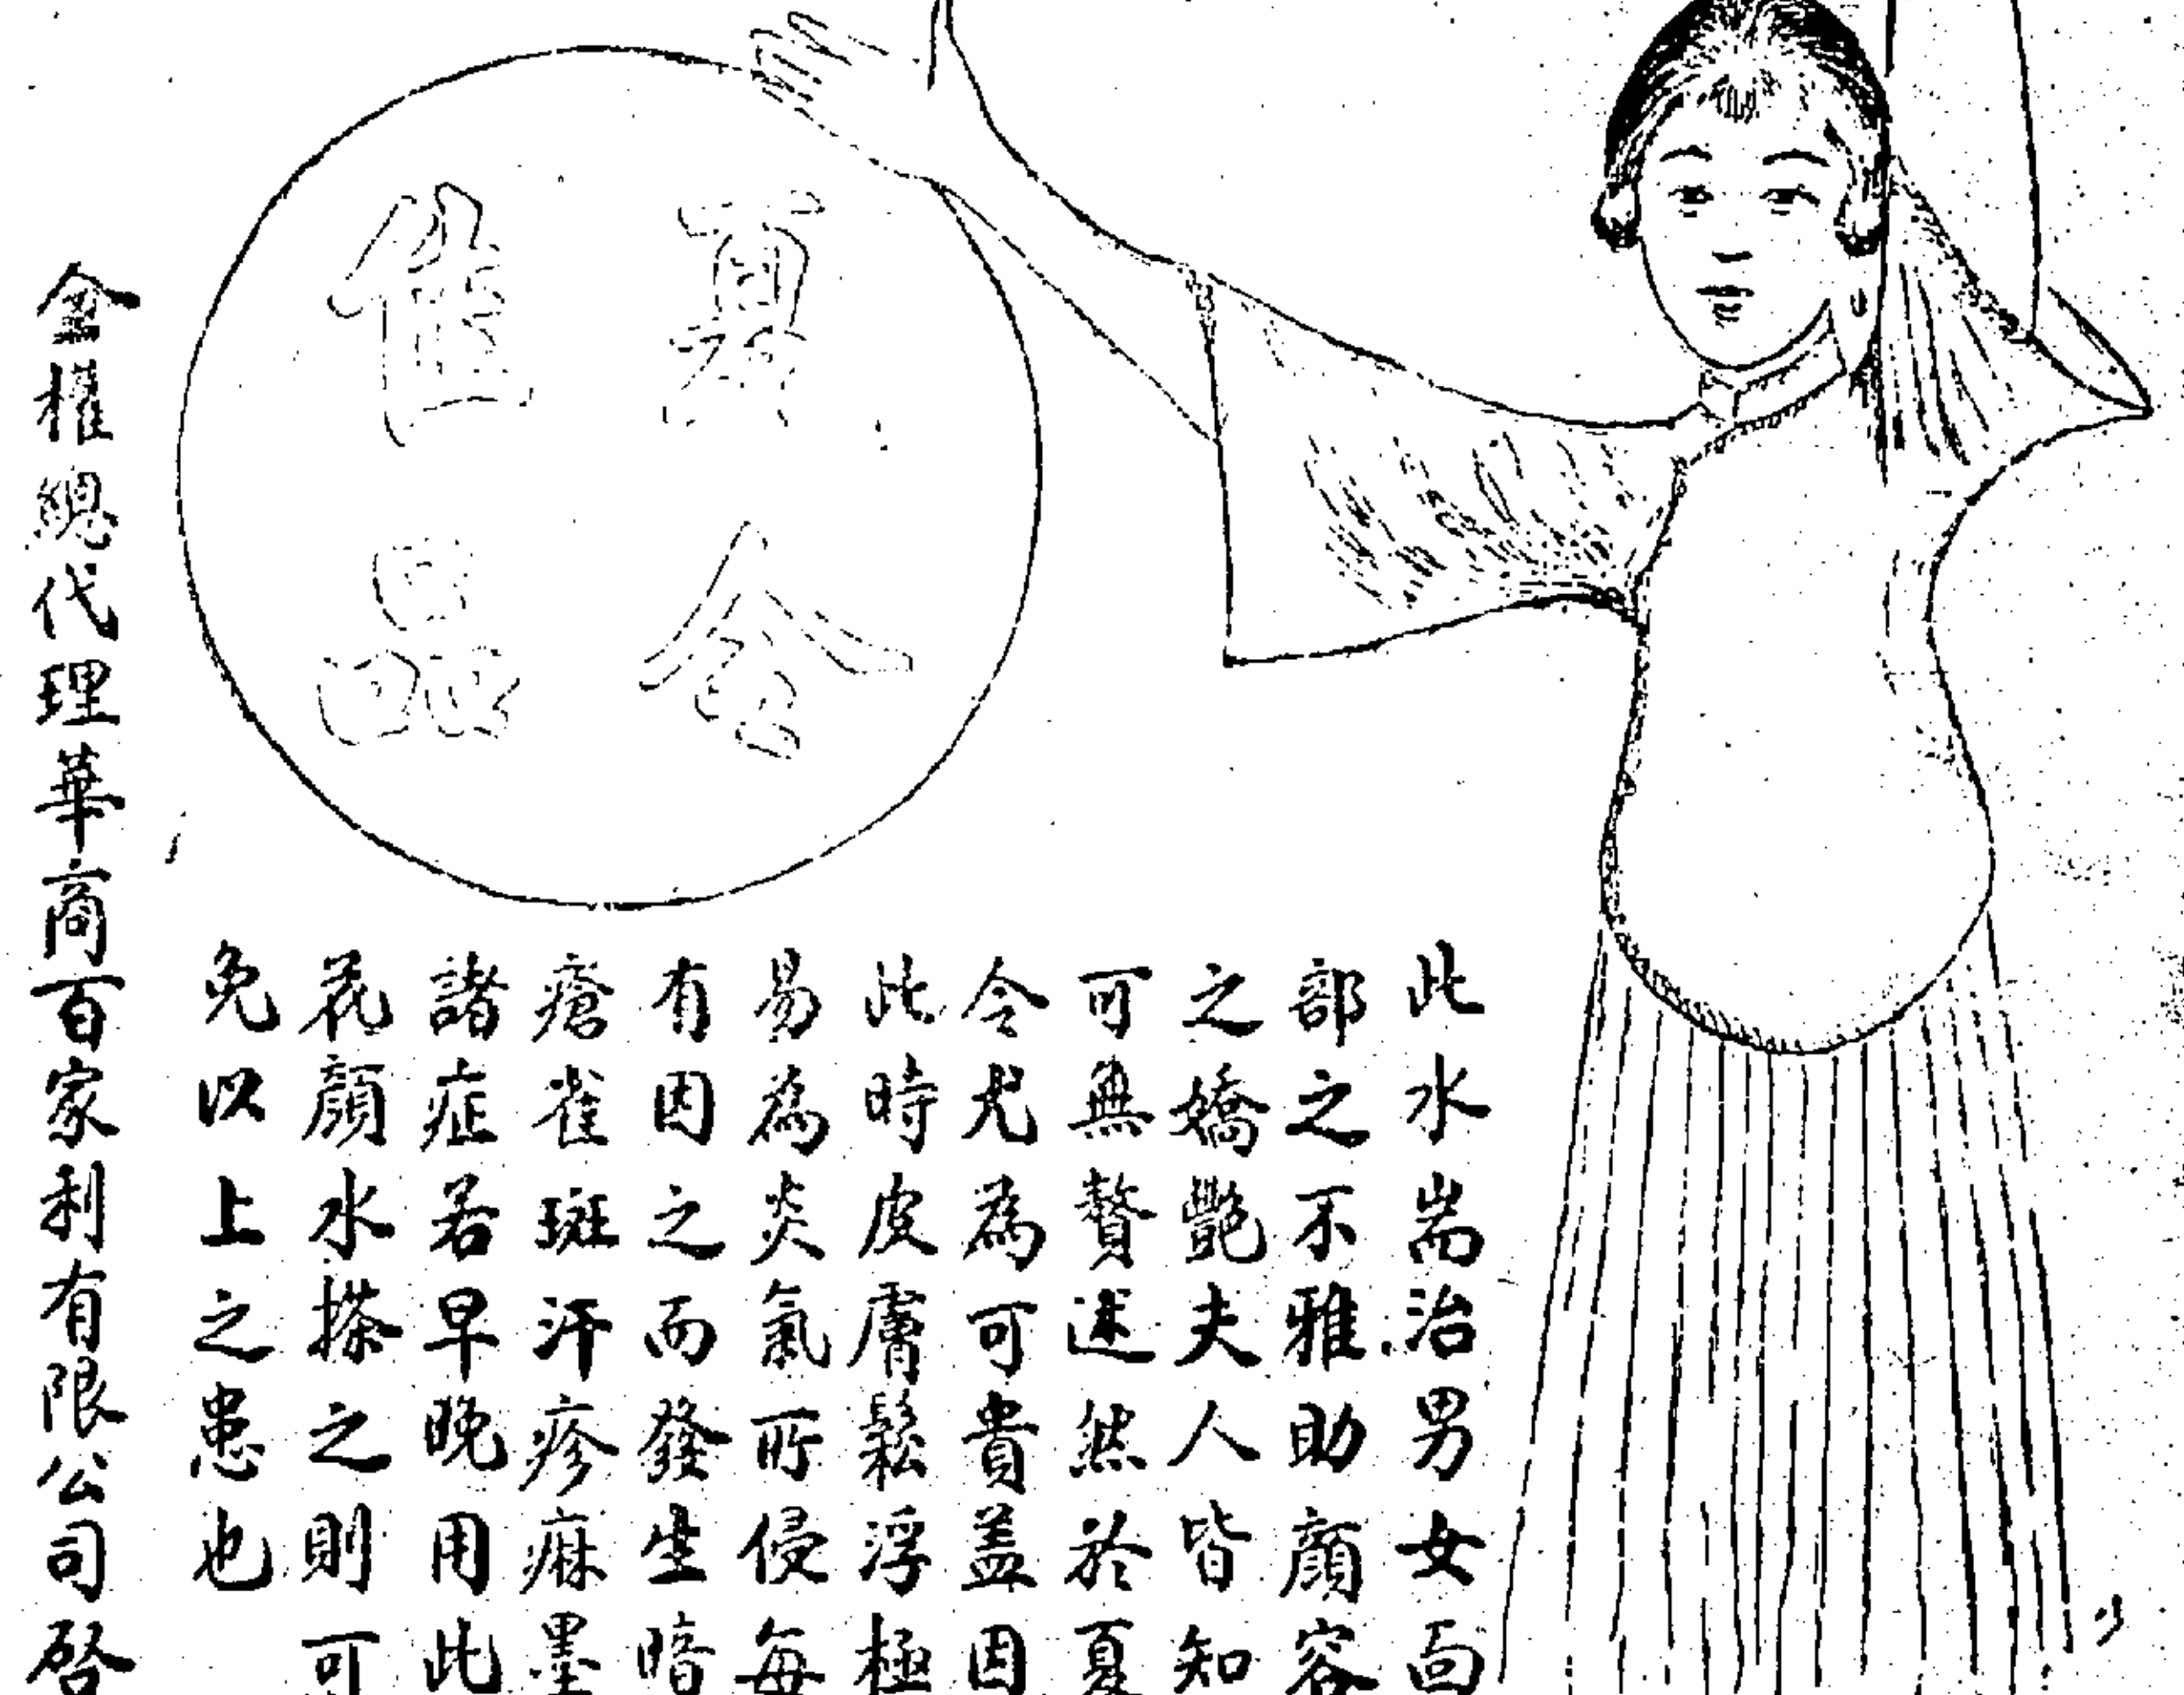 夏令
佳品
此水耑治男女面
部之不雅助顏容
之嬌艷夫人皆知
可無贅述然於夏
令尤為可貴盖因
此時皮膚鬆浮極
易為炎氣所侵每
有因之而發生暗
瘡雀斑汗疹痳墨
諸症若早晚用此
花顏水搽之則可
免以上之患也
全權總代理華商百家利有限公司啓